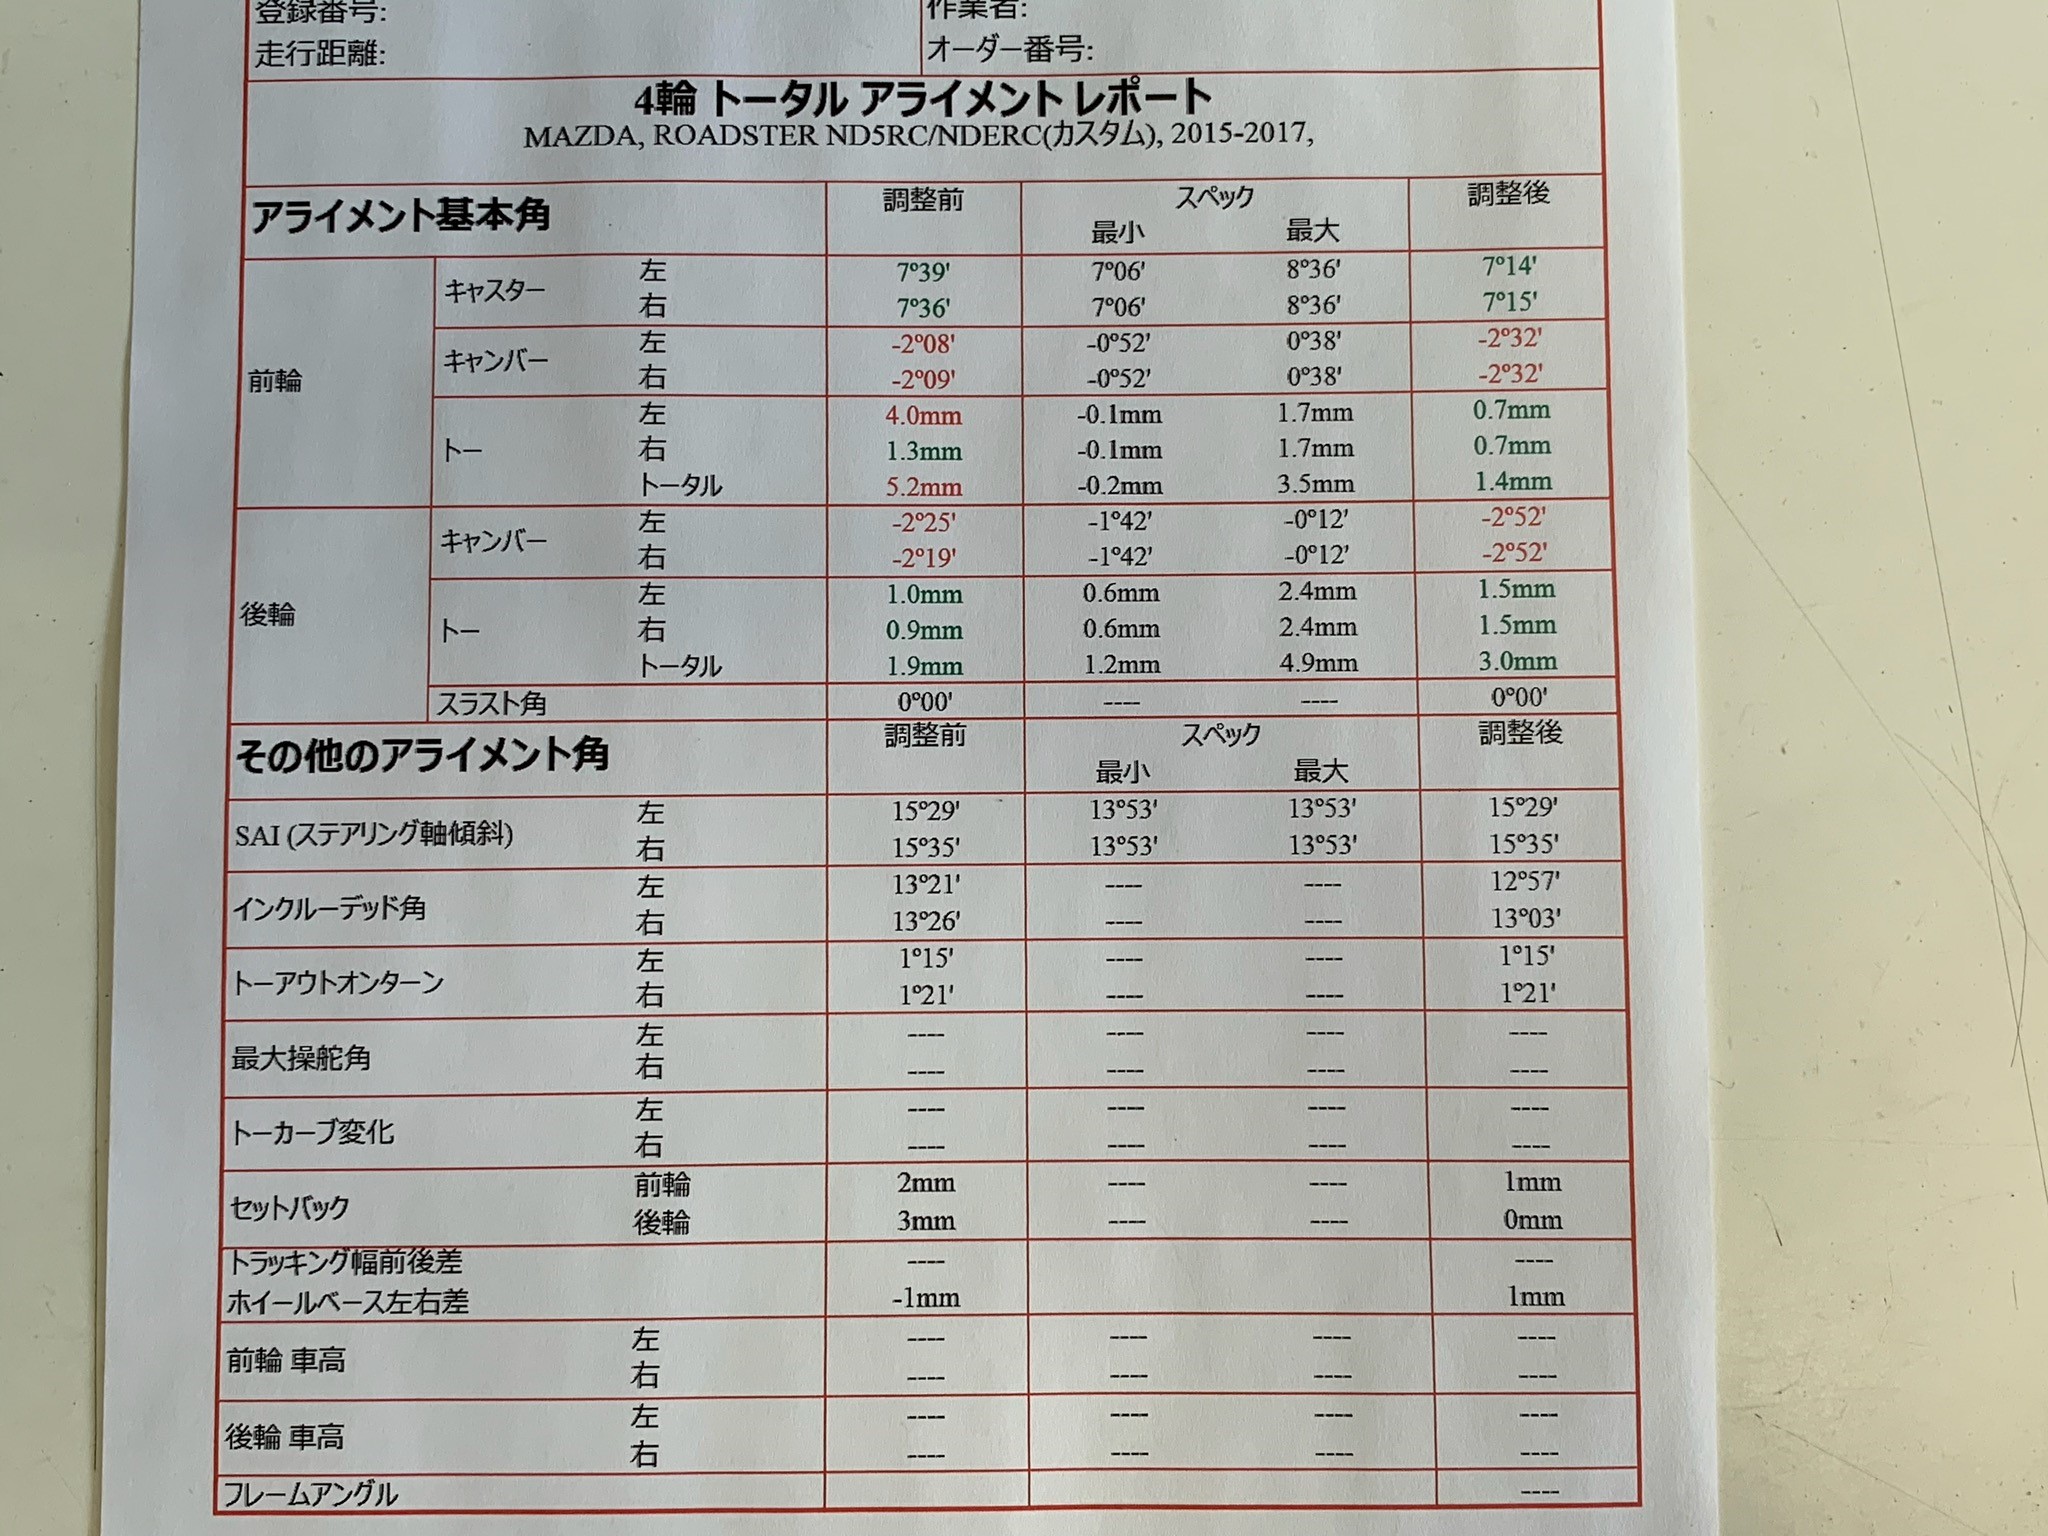 登録番号: 作業者:
走行距離: オーダー番号:
4輪 トータル アライメント レポート
MAZDA, ROADSTER ND5RC/NDERC(カスタム), 2015-2017,
アライメント基本角 調整前 スペック 調整後
最小 最大
前輪 キャスター 左 7º39' 7º06' 8º36' 7º14'
右 7º36' 7º06' 8º36' 7º15'
キャンバー 左 -2º08' -0º52' 0º38' -2º32'
右 -2º09' -0º52' 0º38' -2º32'
トー 左 4.0mm -0.1mm 1.7mm 0.7mm
右 1.3mm -0.1mm 1.7mm 0.7mm
トータル 5.2mm -0.2mm 3.5mm 1.4mm
後輪 キャンバー 左 -2º25' -1º42' -0º12' -2º52'
右 -2º19' -1º42' -0º12' -2º52'
トー 左 1.0mm 0.6mm 2.4mm 1.5mm
右 0.9mm 0.6mm 2.4mm 1.5mm
トータル 1.9mm 1.2mm 4.9mm 3.0mm
スラスト角 0º00' ---- ---- 0º00'
その他のアライメント角 調整前 スペック 調整後
最小 最大
SAI (ステアリング軸傾斜) 左 15º29' 13º53' 13º53' 15º29'
右 15º35' 13º53' 13º53' 15º35'
インクルーデッド角 左 13º21' ---- ---- 12º57'
右 13º26' ---- ---- 13º03'
トーアウトオンターン 左 1º15' ---- ---- 1º15'
右 1º21' ---- ---- 1º21'
最大操舵角 左 ---- ---- ---- ----
右 ---- ---- ---- ----
トーカーブ変化 左 ---- ---- ---- ----
右 ---- ---- ---- ----
セットバック 前輪 2mm ---- ---- 1mm
後輪 3mm ---- ---- 0mm
トラッキング幅前後差 ---- ----
ホイールベース左右差 -1mm 1mm
前輪 車高 左 ---- ---- ---- ----
右 ---- ---- ---- ----
後輪 車高 左 ---- ---- ---- ----
右 ---- ---- ---- ----
フレームアングル ----